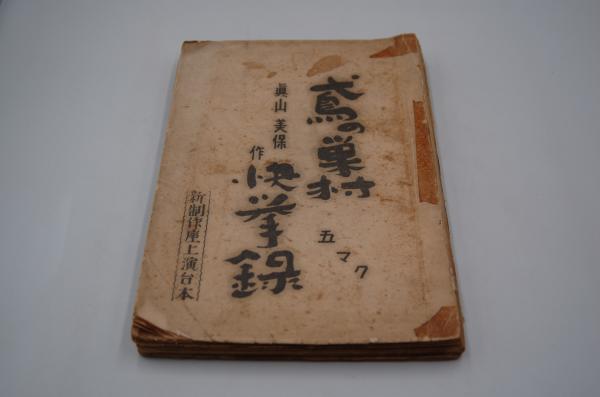 鳶の巣村
快挙録
五マク
眞山美保 作
新制作座上演台本